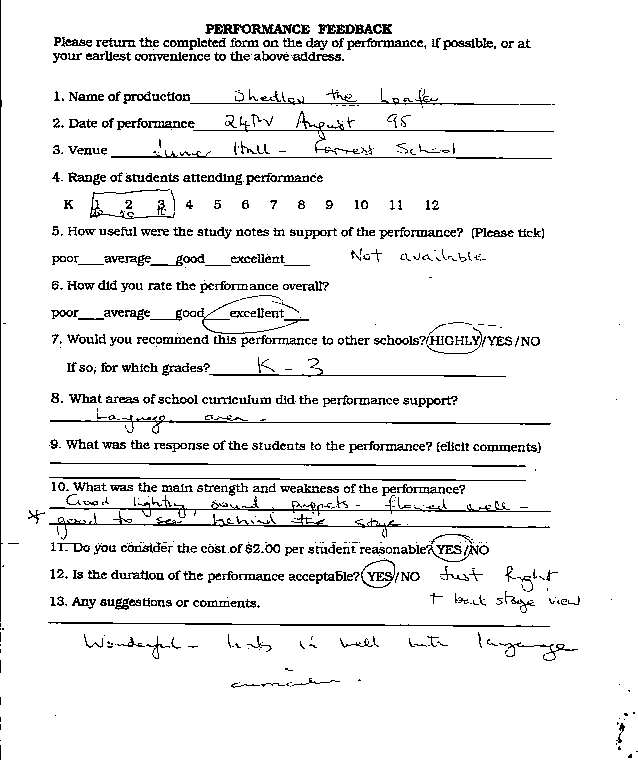 PERFORMANCE FEEDBACK
Please return the completed form on the day of performance, if possible, or at
your earliest convenience to the above address.
1. Name of production the
2. Date of performance August 95
3. Venue Hall - Forrest School
4. Range of students attending performance
K 1 2 3 4 5 6 7 8 9 10 11 12
5. How useful were the study notes in support of the performance? (Please tick)
poor___average___good___excellent___ Not available
6. How did you rate the performance overall?
poor___average___good___excellent___
7. Would you recommend this performance to other schools?(HIGHLY)/YES/NO
If so, for which grades? K - 3
8. What areas of school curriculum did the performance support?
Language area.
9. What was the response of the students to the performance? (elicit comments)
10. What was the main strength and weakness of the performance?
Good lighting, sound, puppets - flowed well -
* good to see behind the stage.
11. Do you consider the cost of $2.00 per student reasonable? YES/NO
12. Is the duration of the performance acceptable? YES/NO Just Right
13. Any suggestions or comments. + back stage view
Wonderful - links in well with language